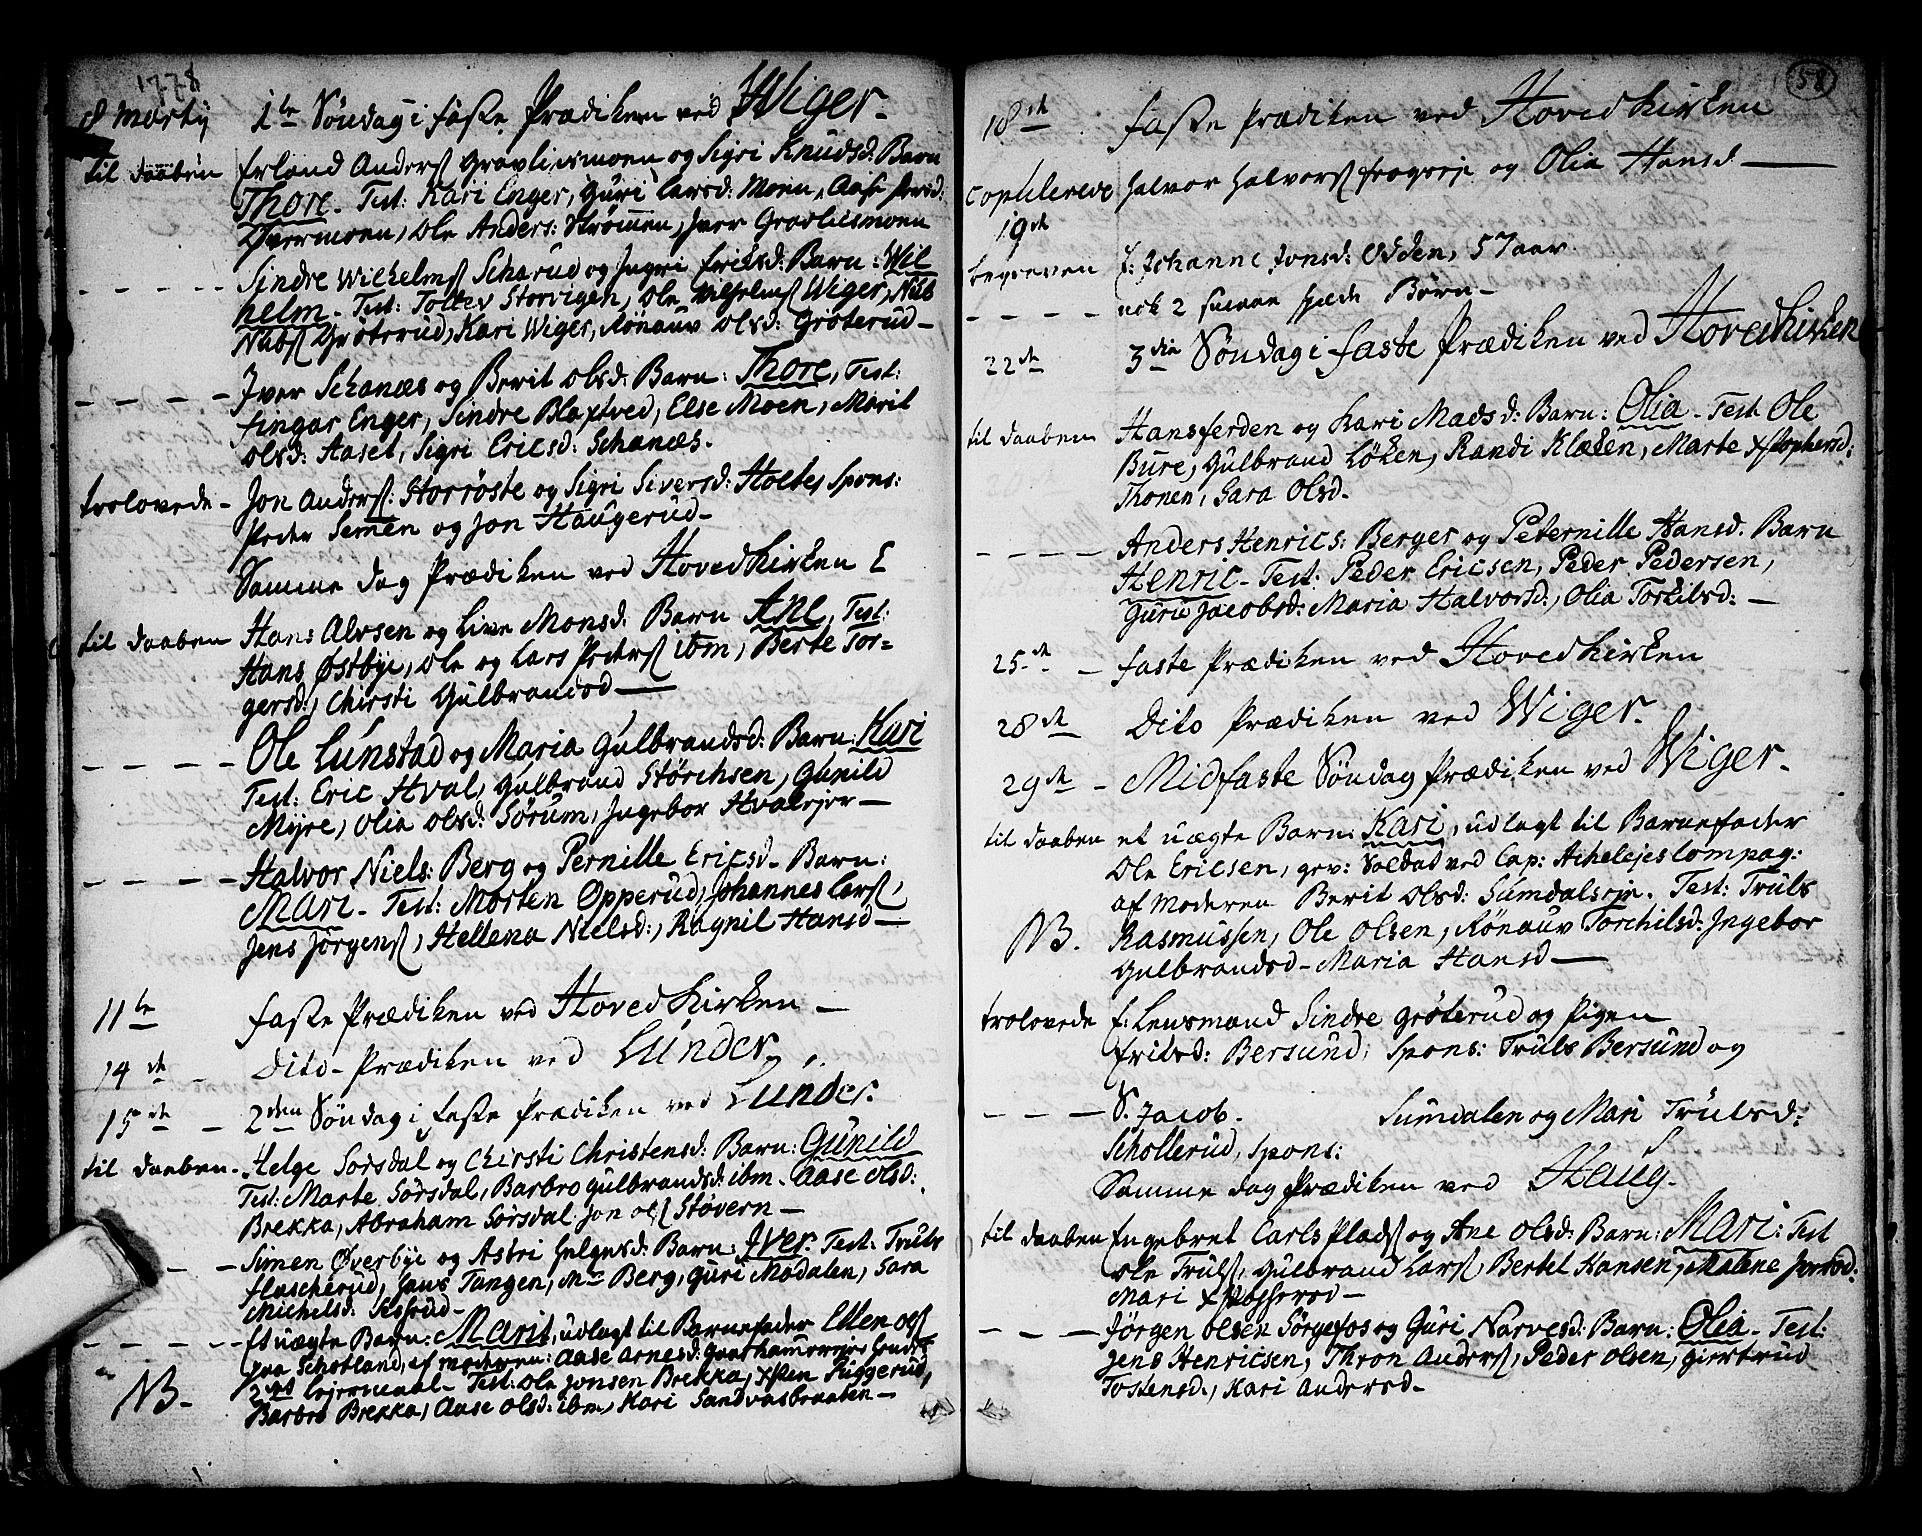 1778
8 Martij 1te Søndag i faste Prædiken ved Wiger.
til daaben Erland Anders: Gravliesmoen og Sigri Knudsd: Barn
Thore. Test: Kari Enger, Guri Larsd: Moen, Aase Iversd:
Øvermoen, Ole Anders: Strømmen, Iver Gravliesmoen
- - - - - Sindre Wilhelms: Scharud og Ingri Eriksd: Barn: Wil
helm. Test: Tollev Storvigen, Ole Wilhelms: Wiger, Nub
Nubs: Grøterud, Kari Wiger, Rønauv Olsd: Grøterud
- - - - - Iver Schanæs og Berit Olsd: Barn: Thore, Test:
fingar Enger, Sindre Blaxtved, Else Moen, Marit
Olsd: Aaset, Sigri Ericsd: Schanæs.
trolovede - Jon Anders: Storrøste og Sigri Siversd: Holte, Spons:
Peder Semen og Jon Haugerud
Samme dag Prædiken ved Hovedkirken
til daaben Hans Alvsen og Live Monsd: Barn Ane, Test:
Hans Østbye, Ole og Lars Peders: ibm, Berte Tor=
gersd:, Chirsti Gulbrandsd
- - - - Ole Lunstad og Maria Gulbrandsd: Barn: Kari
Test: Eric Hval, Gulbrand Størchsen, Gunild
Myre, Olia Olsd: Sørum, Ingebor Hvalsejer
- - - - Halvor Niels: Berg og Pernille Ericsd. Barn:
Mari. Test: Morten Opperud, Johannes Lars:,
Jens Jørgens:, Hellena Nielsd:, Ragnil Hansd
11te faste Prædiken ved Hovedkirken
14de Dito Prædiken ved Lunder
15de 2den Søndag i faste Prædiken ved Lunder.
til daaben. Helge Sørsdal og Chirsti Christensd: Barn: Gunild
Test: Marte Sørsdal, Barbro Gulbrandsd: ibm. Aase Olsd:
Brekka, Abraham Sørsdal Jon Ols: Støvern
- - Simen Øverbye og Astri Helgesd: Barn: Iver. Test: Truls
Flascherud, Jans Tangen, Mc Berg, Guri Modalen, Sara
Michelsd:
- - - - Et uægte Barn: Marit, udlagt til Barnefader Ellen Ols:
paa Schotland, af moderen: Aase Arnesd:
2det Leiermaal. Test: Ole Jonsen Brekka, Xsten Riggerud,
NB. Barbro Brekka, Aase Olsd: ibm, Kari Sandvasbraaten
58
18de faste Prædiken ved Hovedkirken
Copulerede Halvor Halvors: frogeie og Olia Hansd
19de
begraven f: Johanne Jonsd: Odden, 57 aar
- - - - nok 2 smaae spæde Børn
22de 3die Søndag i faste Prædiken ved Hovedkirken
til daaben Hansferden og Kari Madsd: Barn: Olia. Test. Ole
Bure, Gulbrand Løken, Randi Klæken, Marte Xstophersd:
Thonen, Sara Olsd.
- - - - Anders Henrics: Berger og Peternille Hansd. Barn
Henric. Test: Peder Ericsen, Peder Pedersen,
Guru Jacobsd: Maria Halvorsd:, Olia Torkilsd:
25de faste Prædiken ved Hovedkirken
28de Dito Prædiken ved Wiger.
29de - Midfaste Søndag Prædiken ved Wiger.
til daaben et uægte Barn: Kari, udlagt til Barnefader
Ole Ericsen, gev: Soldat ved Cap: Achelejes Compag:
af Moderen Berit Olsd: Sumdalseie. Test: Truls
NB. Rasmussen, Ole Olsen, Rønauv Torchilsd: Ingebor
Gulbrandsd. Maria Hansd
trolovede f: Lensmand Sindre Grøterud og Pigen
fritsd: Bersund, Spons: Truls Bersund og
- - - S. Jacob. Sumdalen og Mari Trulsd:
Schollerud, Spons:
Samme dag Prædiken ved Haug.
til daaben Engebret Carls Plads: og Ane Olsd: Barn: Mari: Test
Ole Truls:, Gulbrand Lars:, Bertel Hansen, Malene Jonsd:
Mari
- - - Jørgen Olsen Sørgefos og Guri Narvesd: Barn: Olia. Test:
Jens Henricsen, Thron Anders:, Peder Olsen, Giertrud
Tostensd:, Kari Andersd.